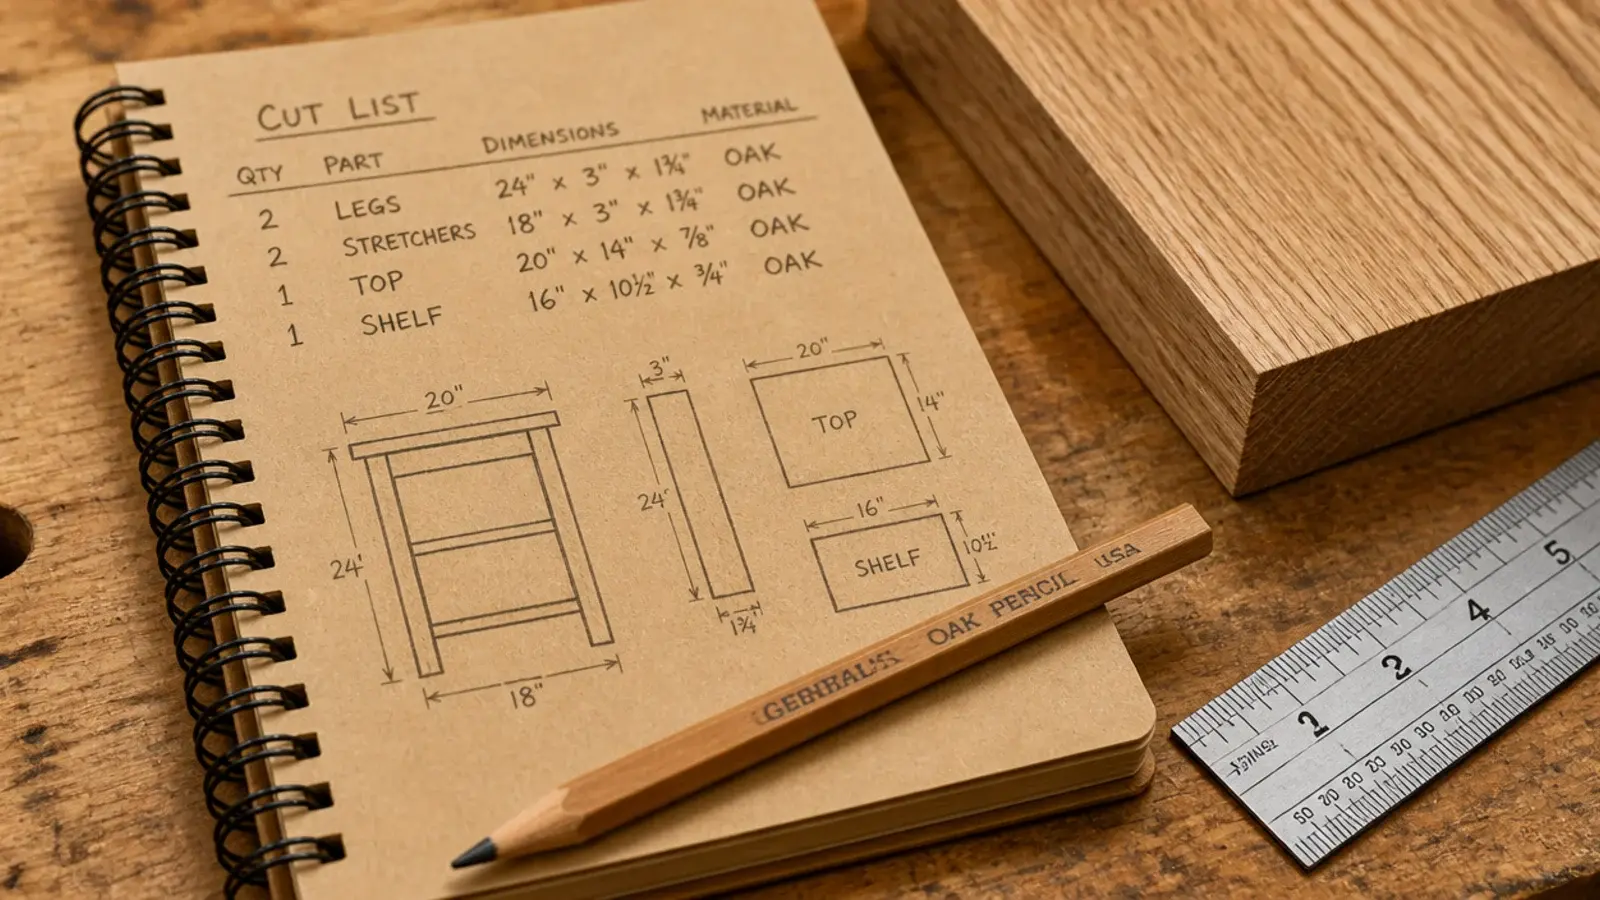 CUT LIST
QTY PART DIMENSIONS MATERIAL
2 LEGS 24" x 3" x 1¾" OAK
2 STRETCHERS 18" x 3" x 1¾" OAK
1 TOP 20" x 14" x ⅞" OAK
1 SHELF 16" x 10½" x ¾" OAK
20"
24'
18"
3"
24'
1¾"
20"
TOP
14"
16"
SHELF
10½"
OAK PENCIL USA
1 2 4 5